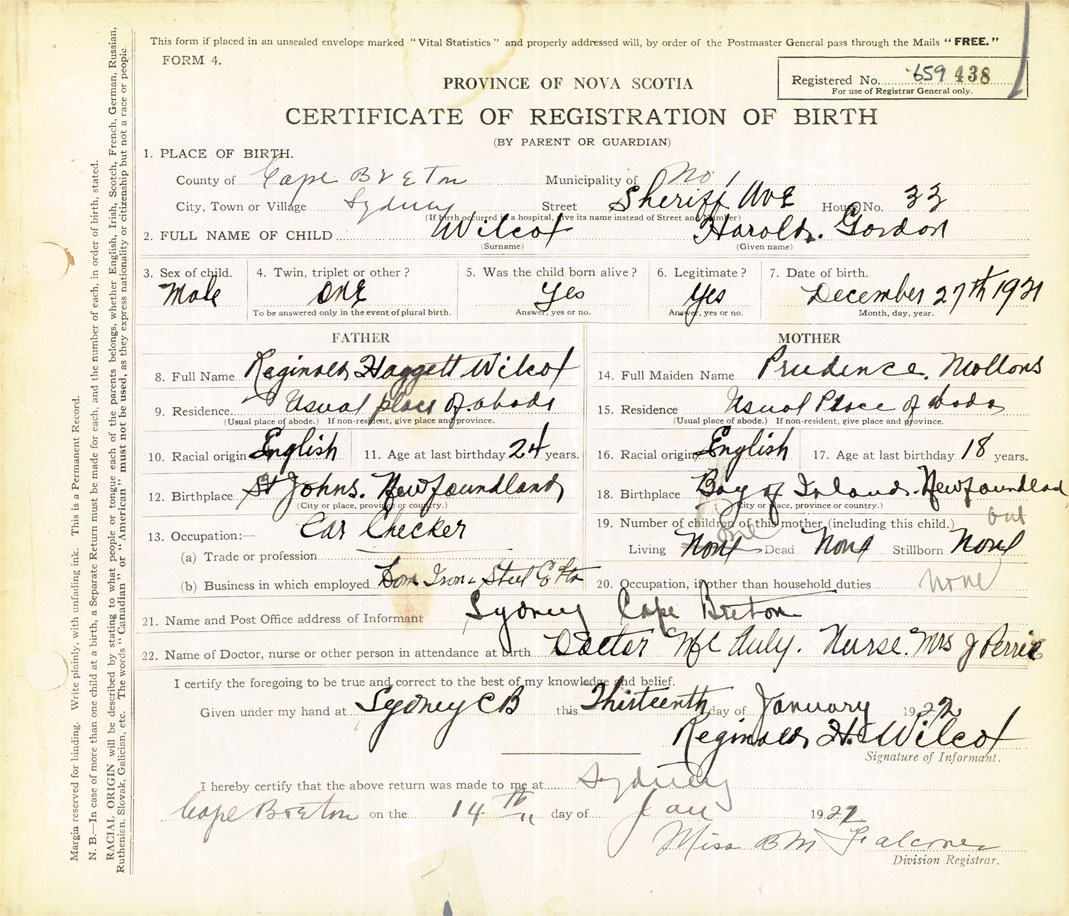 This form if placed in an unsealed envelope marked "Vital Statistics" and properly addressed will, by order of the Postmaster General pass through the Mails "FREE."
FORM 4.
Registered No. 659 438
For use of Registrar General only.
PROVINCE OF NOVA SCOTIA
CERTIFICATE OF REGISTRATION OF BIRTH
(BY PARENT OR GUARDIAN)
1. PLACE OF BIRTH.
County of Cape Breton Municipality of No 1
City, Town or Village Sydney Street Sheriff Ave House No. 33
(If birth occurred in a hospital, give its name instead of Street and Number)
2. FULL NAME OF CHILD Wilcox Harold. Gordon
(Surname) (Given name)
3. Sex of child. 4. Twin, triplet or other? 5. Was the child born alive? 6. Legitimate? 7. Date of birth.
Male one Yes Yes December 27th 1921
To be answered only in the event of plural birth. Answer, yes or no. Answer, yes or no. Month, day, year.
FATHER
8. Full Name Reginald Haggett Wilcox
9. Residence. Usual place of abode
(Usual place of abode.) If non-resident, give place and province.
10. Racial origin English 11. Age at last birthday 24 years.
12. Birthplace St Johns. Newfoundland
(City or place, province or country.)
13. Occupation:— Car Checker
(a) Trade or profession
(b) Business in which employed Dom Iron & Steel Co Ltd
MOTHER
14. Full Maiden Name Prudence. Mollons
15. Residence Usual Place of abode
(Usual place of abode.) If non-resident, give place and province.
16. Racial origin English 17. Age at last birthday 18 years.
18. Birthplace Bay of Islands. Newfoundland
(City or place, province or country.)
19. Number of children of this mother (including this child.) but
one
Living None Dead None Stillborn None
20. Occupation, if other than household duties none
21. Name and Post Office address of Informant Sydney Cape Breton
22. Name of Doctor, nurse or other person in attendance at birth Doctor Mc Auly. Nurse. Mrs J Perrie
I certify the foregoing to be true and correct to the best of my knowledge and belief.
Given under my hand at Sydney CB this Thirteenth day of January 1922
Reginald H. Wilcox
Signature of Informant.
I hereby certify that the above return was made to me at Sydney
Cape Breton on the 14th day of Jan 1922
Miss BM Falconer
Division Registrar.
Margin reserved for binding. Write plainly, with unfading ink. This is a Permanent Record.
N. B.—In case of more than one child at a birth, a Separate Return must be made for each, and the number of each, in order of birth, stated.
RACIAL ORIGIN will be described by stating to what people or tongue each of the parents belongs, whether English, Irish, Scotch, French, German, Russian,
Ruthenian, Slovak, Galician, etc. The words "Canadian" or "American" must not be used, as they express nationality or citizenship but not a race or people.